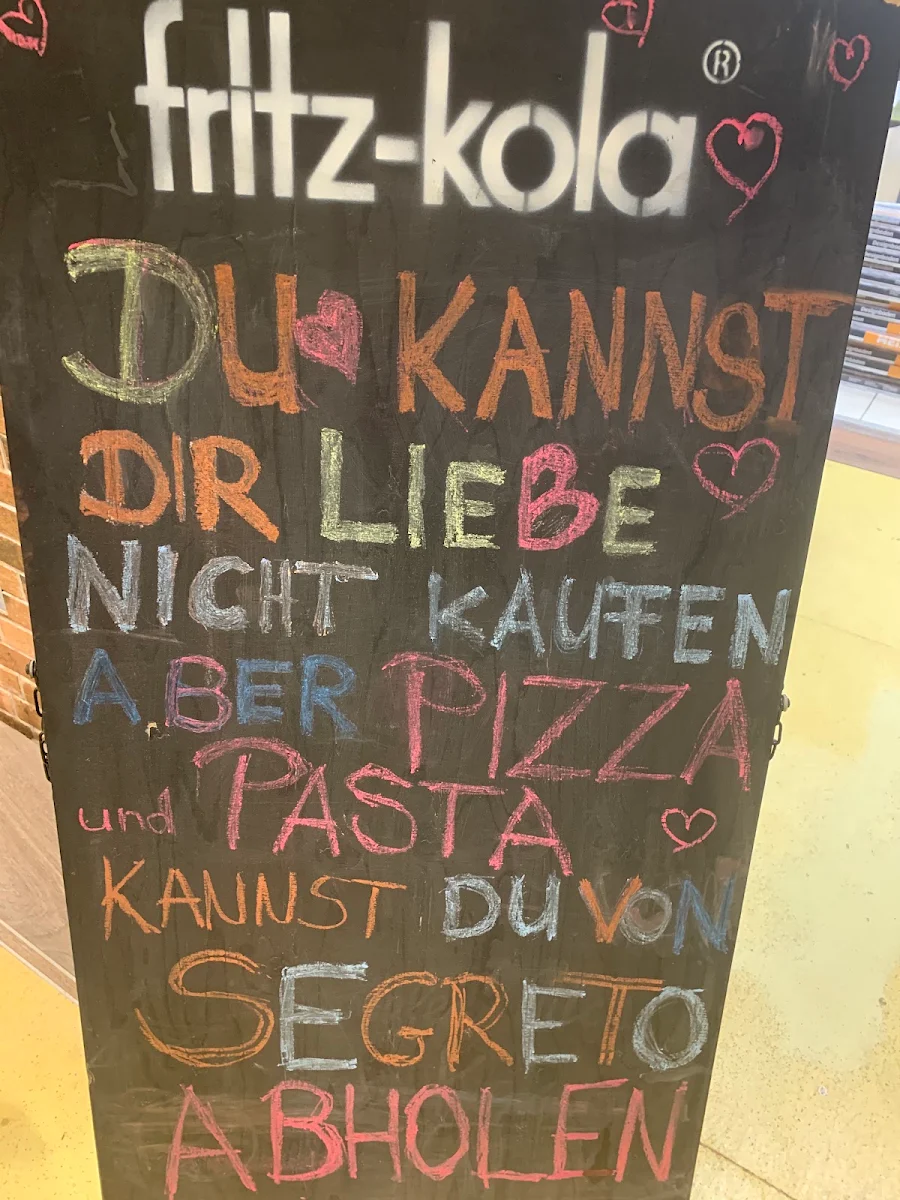 fritz-kola®
DU KANNST
DIR LIEBE
NICHT KAUFEN
ABER PIZZA
und PASTA
KANNST DU VON
SEGRETO
ABHOLEN